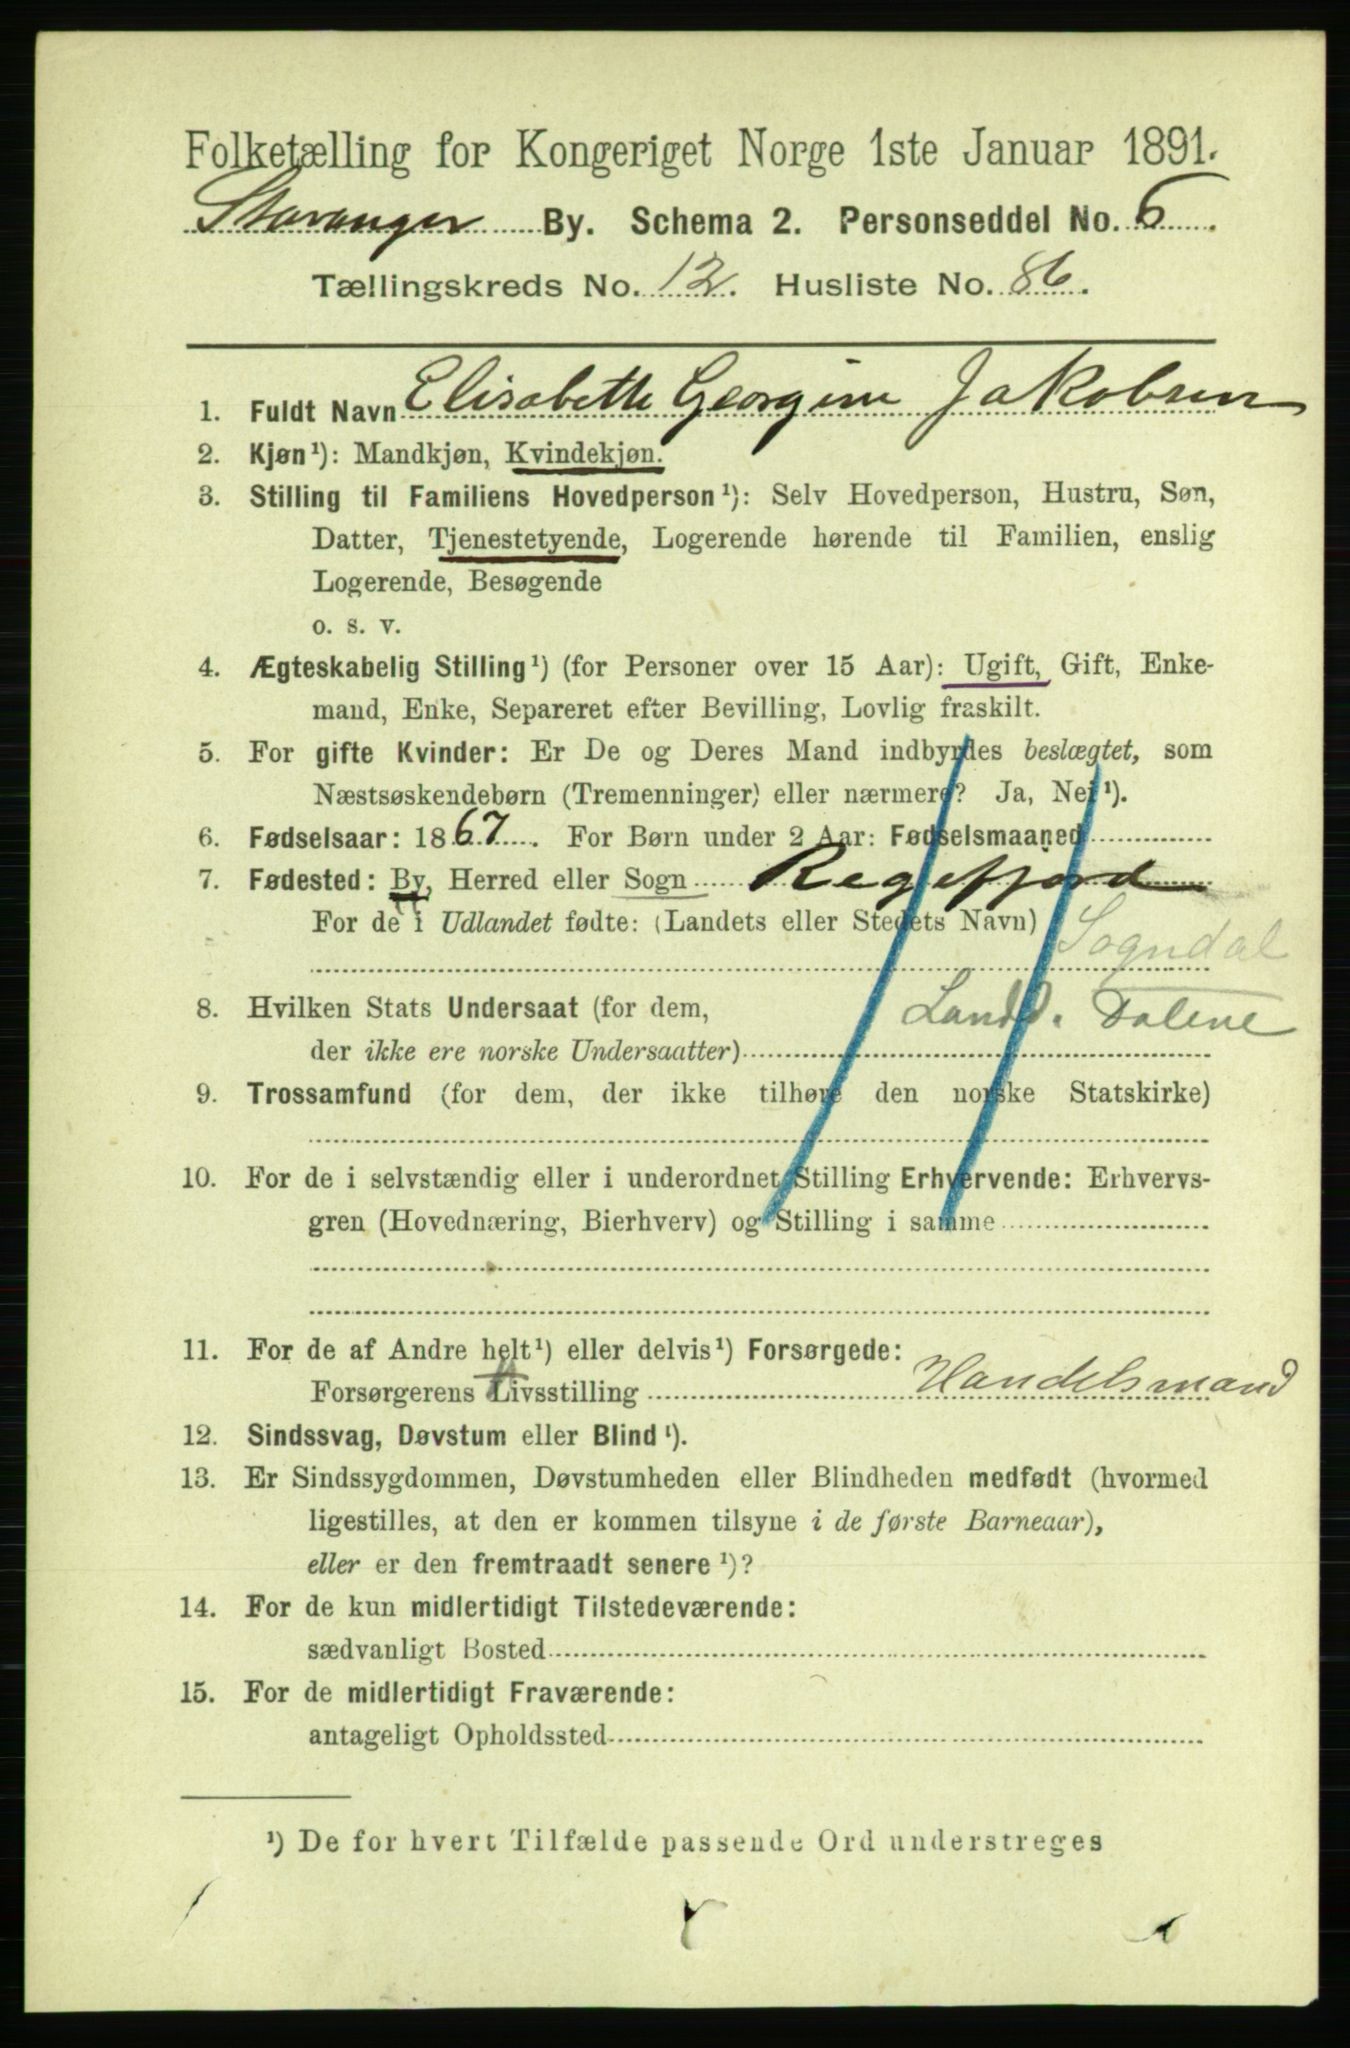 Folketælling for Kongeriget Norge 1ste Januar 1891.
Stavanger By. Schema 2. Personseddel No. 6.
Tællingskreds No. 12. Husliste No. 86.
1. Fuldt Navn Elisabeth Georgine Jakobsen
2. Kjøn¹): Mandkjøn, Kvindekjøn.
3. Stilling til Familiens Hovedperson¹): Selv Hovedperson, Hustru, Søn,
Datter, Tjenestetyende, Logerende hørende til Familien, enslig
Logerende, Besøgende
o. s. v.
4. Ægteskabelig Stilling¹) (for Personer over 15 Aar): Ugift, Gift, Enke-
mand, Enke, Separeret efter Bevilling, Lovlig fraskilt.
5. For gifte Kvinder: Er De og Deres Mand indbyrdes beslægtet, som
Næstsøskendebørn (Tremenninger) eller nærmere? Ja, Nei¹).
6. Fødselsaar: 1867. For Børn under 2 Aar: Fødselsmaaned
7. Fødested: By, Herred eller Sogn Regefjord
For de i Udlandet fødte: (Landets eller Stedets Navn) Sogndal
8. Hvilken Stats Undersaat (for dem, Landd. Dalene
der ikke ere norske Undersaatter)
9. Trossamfund (for dem, der ikke tilhøre den norske Statskirke)
10. For de i selvstændig eller i underordnet Stilling Erhvervende: Erhvervs-
gren (Hovednæring, Bierhverv) og Stilling i samme
11. For de af Andre helt¹) eller delvis¹) Forsørgede:
Forsørgerens Livsstilling Handelsmand
12. Sindssvag, Døvstum eller Blind¹).
13. Er Sindssygdommen, Døvstumheden eller Blindheden medfødt (hvormed
ligestilles, at den er kommen tilsyne i de første Barneaar),
eller er den fremtraadt senere¹)?
14. For de kun midlertidigt Tilstedeværende:
sædvanligt Bosted
15. For de midlertidigt Fraværende:
antageligt Opholdssted
¹) De for hvert Tilfælde passende Ord understreges